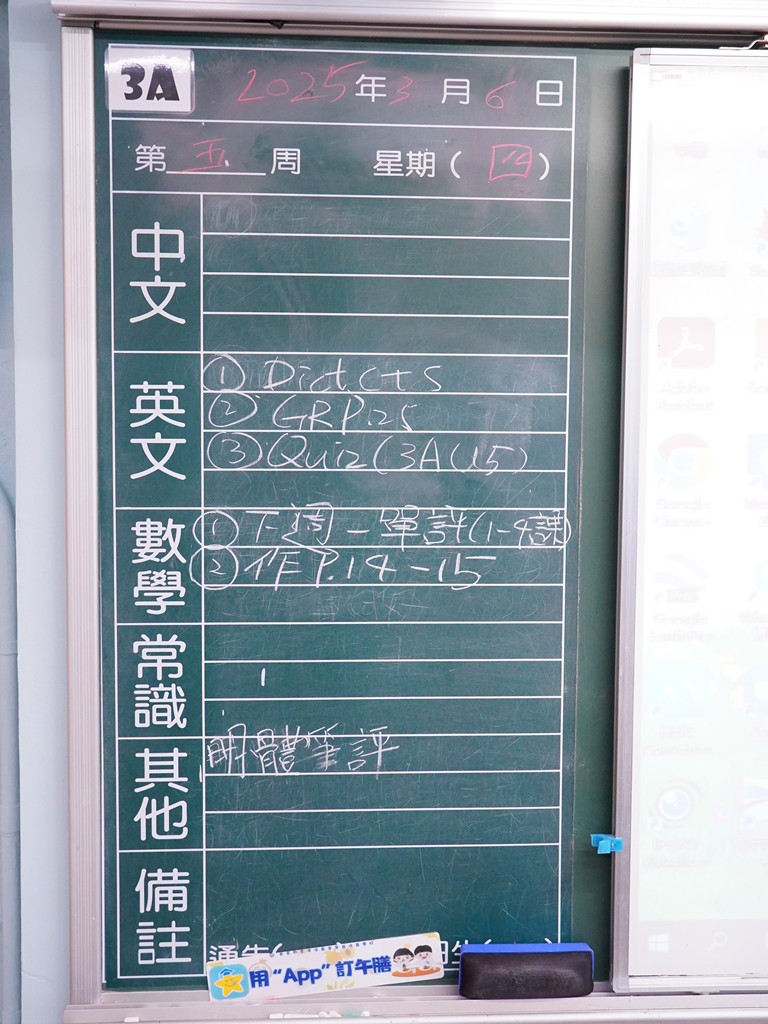 3A 2025年3月6日
第五周 星期(四)
中文
英文
① Dict. C+S
② GRP.25
③ Quiz (3A U5)
數學
① 下週一單評(1-4課)
② 作P.14-15
常識
其他
明體筆評
備註
通告(
用“App”訂午膳